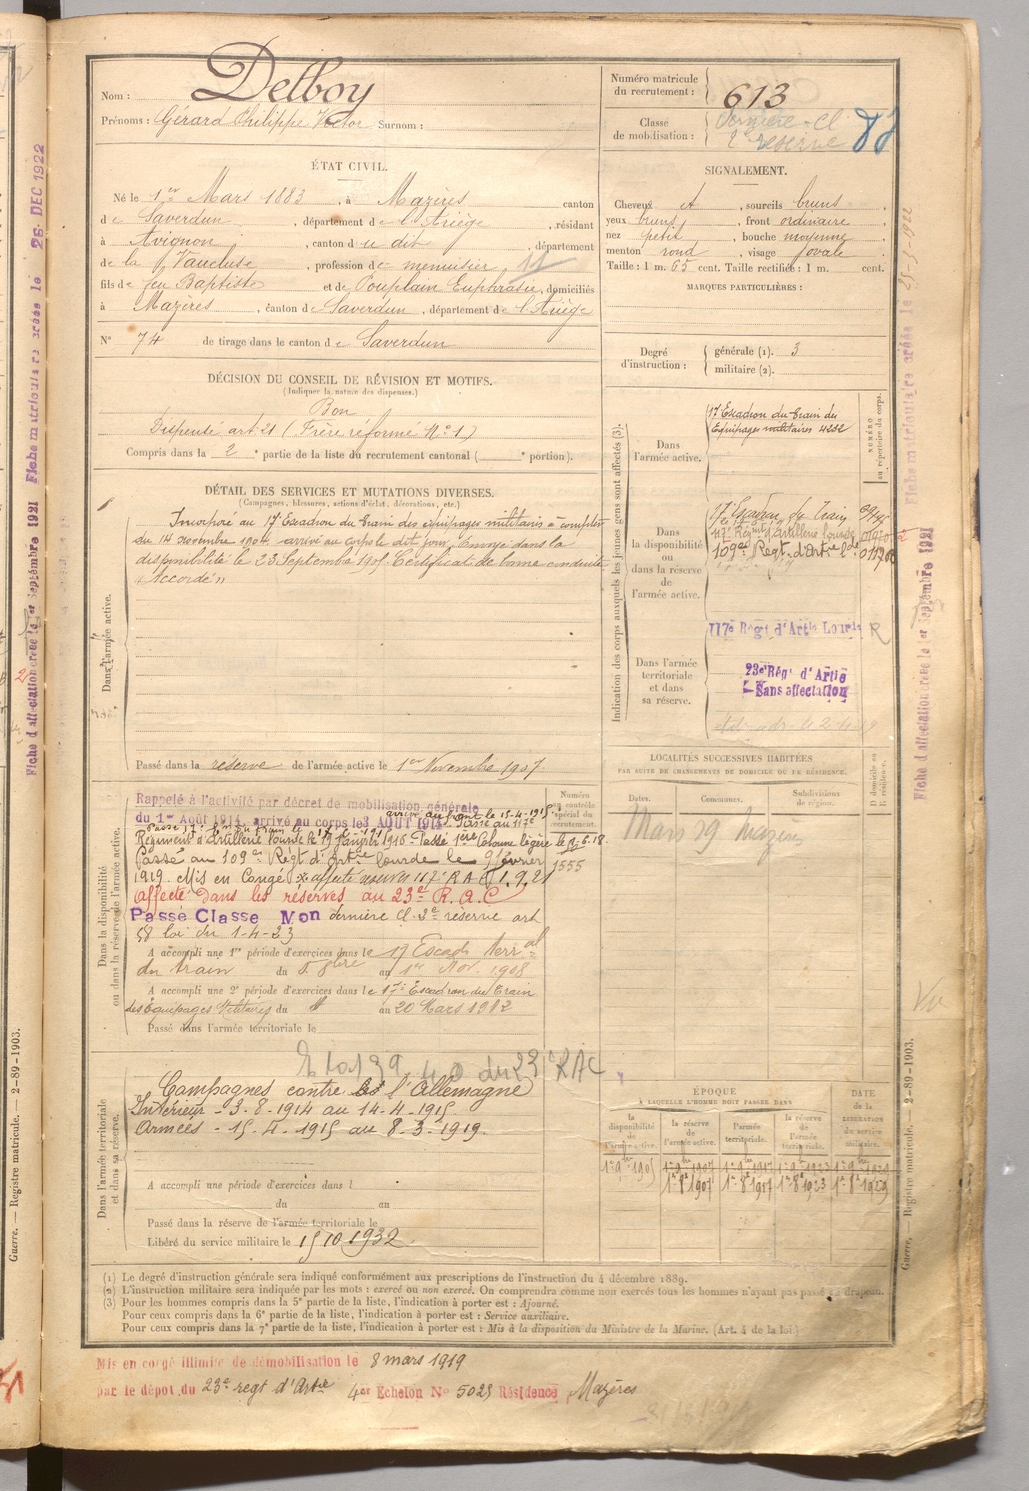 Nom : Delboy
Prénoms : Gérard Philippe Victor Surnom :
ÉTAT CIVIL.
Né le 1er Mars 1883, à Mazères canton
de Saverdun, département de l'Ariège, résidant
à Avignon, canton du dit, département
de la Vaucluse, profession de menuisier
fils de feu Baptiste et de Pouplain Euphrasie, domiciliés
à Mazères, canton de Saverdun, département de l'Ariège
No 74 de tirage dans le canton de Saverdun
DÉCISION DU CONSEIL DE RÉVISION ET MOTIFS.
(Indiquer la nature des dispenses.)
Bon
Dispensé art. 21 (Frère réformé No 1)
Compris dans la 2e partie de la liste du recrutement cantonal ( e portion).
DÉTAIL DES SERVICES ET MUTATIONS DIVERSES.
(Campagnes, blessures, actions d'éclat, décorations, etc.)
Dans l'armée active.
Incorporé au 17e Escadron du train des équipages militaires à compter
du 14 novembre 1904 arrivé au corps le dit jour, Envoyé dans la
disponibilité le 23 Septembre 1905. Certificat de bonne conduite
"Accordé"
Passé dans la réserve de l'armée active le 1er Novembre 1907
Dans la disponibilité
ou dans la réserve de l'armée active.
Rappelé à l'activité par décret de mobilisation générale
arrivé au front le 15-4-1915
du 1er Août 1914, arrivé au corps le 3 AOUT 1914 Passé au 117e
Régiment d'Artillerie lourde le 19 Janvier 1916 Passé 1ère Colonne légère
Passé au 109e Régt d'Artrie lourde le 9 février
1919. Mis en Congé affecté 117e R A L 1.9.21
affecté dans les réserves au 23e R.A.C
Passé Classe Mon dernière cl. 2e réserve art
58 loi du 1-4-23
A accompli une 1re période d'exercices dans le 17 Escad. terral
du train du au 1er Nov. 1908
A accompli une 2e période d'exercices dans le 17e Escadron du Train
des Équipages Militaires du 4 au 20 Mars 1912
Passé dans l'armée territoriale le
Numéro
au contrôle
spécial du
recrutement.
1555
40 du 23e RAC
Dans l'armée territoriale
et dans sa réserve.
Campagnes contre l'Allemagne
Intérieur - 3-8-1914 au 14-4-1915
Armées - 15-4-1915 au 8-3-1919.
A accompli une période d'exercices dans l
du au
Passé dans la réserve de l'armée territoriale le
Libéré du service militaire le 15 10 1932
Numéro matricule
du recrutement : 613
Classe
de mobilisation : Dernière Cl
2e réserve
SIGNALEMENT.
Cheveux et, sourcils bruns
yeux bruns, front ordinaire
nez petit, bouche moyenne
menton rond, visage ovale
Taille : 1 m. 65 cent. Taille rectifiée : 1 m. cent.
MARQUES PARTICULIÈRES :
Degré
d'instruction :
générale (1). 3
militaire (2).
Indication des corps auxquels les jeunes gens sont affectés (3).
NUMÉRO
au répertoire du corps.
Dans
l'armée active.
17e Escadron du train des
Équipages militaires 4232
Dans
la disponibilité
ou
dans la réserve
de
l'armée active.
17 Escadron du Train
117e Régt d'Artillerie lourde
109e Régt. d'Artie Lde
117e Régt d'Artie Lourde R
Dans l'armée
territoriale
et dans
sa réserve.
23e Régt d'Artie
Sans affectation
LOCALITÉS SUCCESSIVES HABITÉES
PAR SUITE DE CHANGEMENTS DE DOMICILE OU DE RÉSIDENCE.
Dates. Communes. Subdivisions
de région. D domicile ou
R résidence.
Mars 19 Mazères
ÉPOQUE
À LAQUELLE L'HOMME DOIT PASSER DANS
la
disponibilité
de
l'armée active.
la
réserve
de
l'armée active.
l'armée
territoriale.
la réserve
de
l'armée
territoriale.
DATE
de la
LIBÉRATION
du service
militaire.
1er 9bre 1905 1er 9bre 1907 1er 9bre 1917 1er 9bre 1923 1er 9bre 1929
1er 8e 1907 1er 8e 1917 1er 8e 1923 1er 8e 1929
(1) Le degré d'instruction générale sera indiqué conformément aux prescriptions de l'instruction du 4 décembre 1889.
(2) L'instruction militaire sera indiquée par les mots : exercé ou non exercé. On comprendra comme non exercés tous les hommes n'ayant pas passé au drapeau.
(3) Pour les hommes compris dans la 5e partie de la liste, l'indication à porter est : Ajourné.
Pour ceux compris dans la 6e partie de la liste, l'indication à porter est : Service auxiliaire.
Pour ceux compris dans la 7e partie de la liste, l'indication à porter est : Mis à la disposition du Ministre de la Marine. (Art. 4 de la loi.)
Mis en congé illimité de démobilisation le 8 mars 1919
par le dépot du 23e regt d'Artie 4er Echelon No 5025 Résidence Mazères
Guerre. — Registre matricule. — 2-89-1903.
Guerre. — Registre matricule. — 2-89-1903.
Fiche matriculaire créée le 26 DEC 1922
Fiche d'affectation créée le 1er Septembre 1921
Fiche matriculaire créée le
Fiche d'affectation créée le 1er Septembre 1921